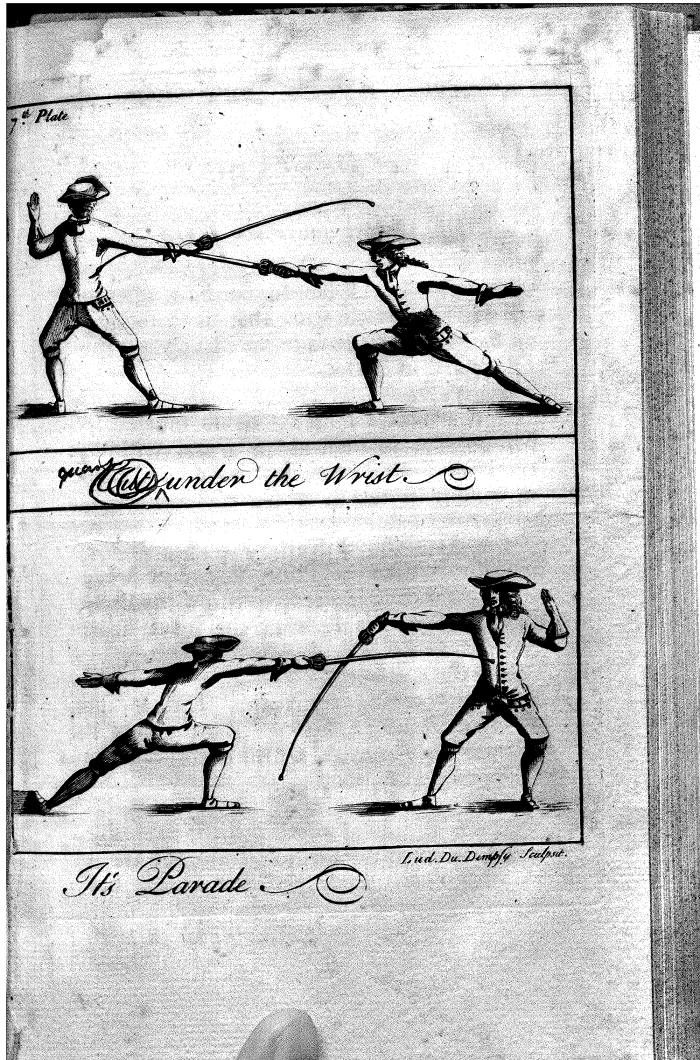 7.th Plate
quart
Cut under the Wrist
Lud. Du. Dempsy Sculpsit.
It's Parade